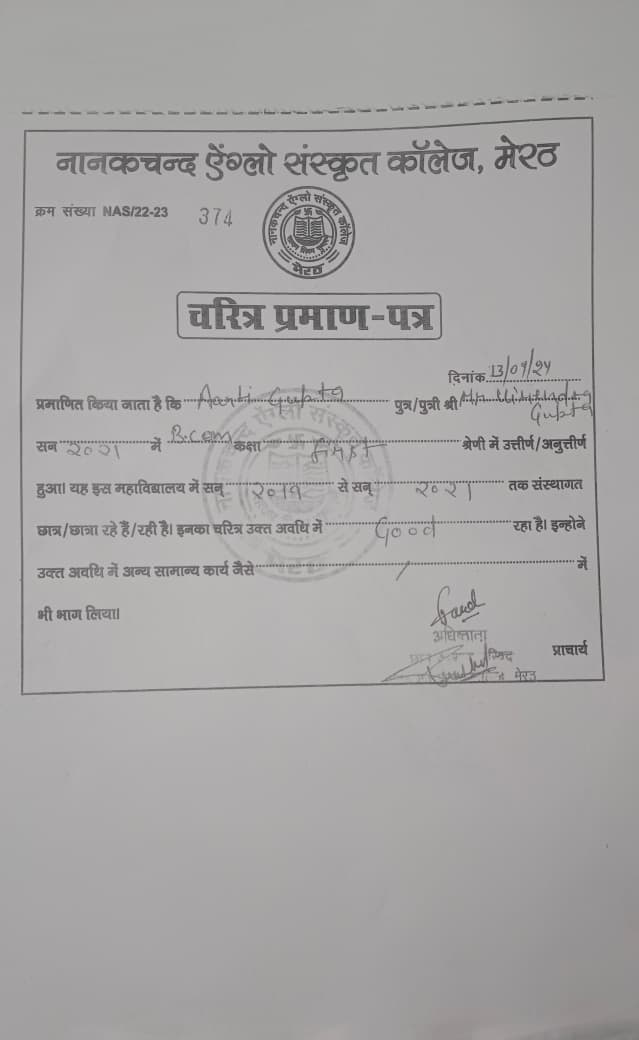 नानकचन्द ऐंग्लो संस्कृत कॉलेज, मेरठ
क्रम संख्या NAS/22-23 374
नानकचन्द ऐंग्लो संस्कृत कॉलेज
मेरठ
चरित्र प्रमाण-पत्र
दिनांक 13/09/24
प्रमाणित किया जाता है कि Aarti Gupta पुत्र/पुत्री श्री Gupta
सन २०२१ में B.com कक्षा First श्रेणी में उत्तीर्ण/अनुत्तीर्ण
हुआ। यह इस महाविद्यालय में सन् २०१९ से सन् २०२१ तक संस्थागत
छात्र/छात्रा रहे हैं/रही है। इनका चरित्र उक्त अवधि में Good रहा है। इन्होने
उक्त अवधि में अन्य सामान्य कार्य जैसे / में
भी भाग लिया।
अधिष्ठाता
प्राचार्य
मेरठ